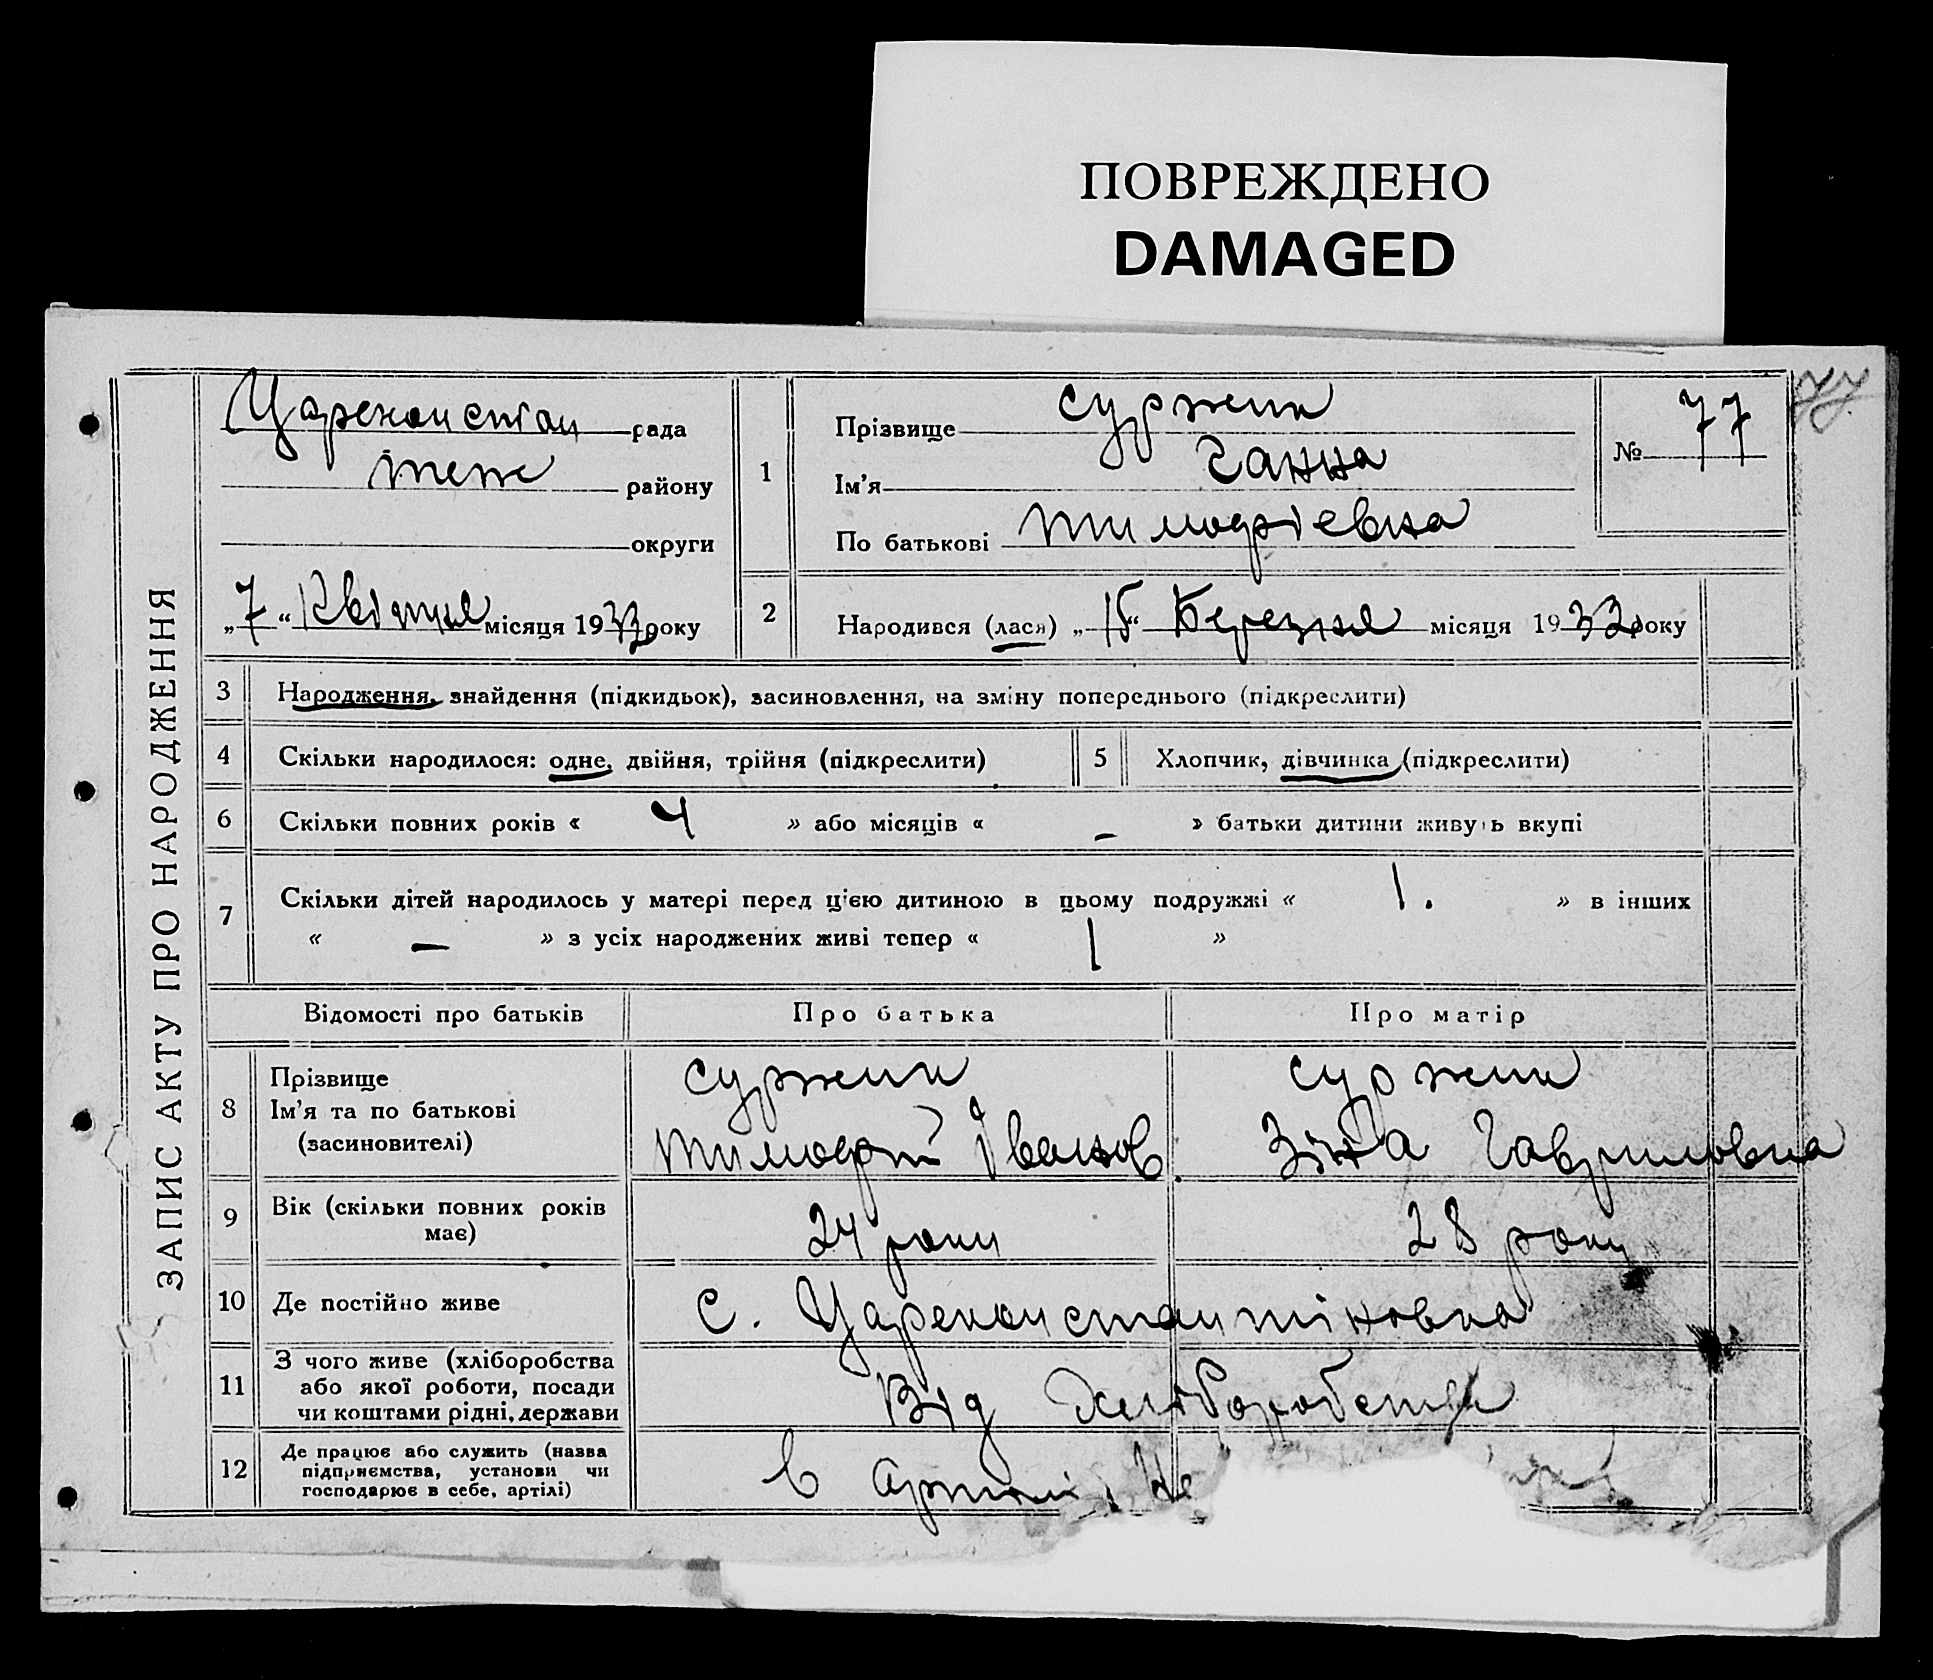 ПОВРЕЖДЕНО
DAMAGED
ЗАПИС АКТУ ПРО НАРОДЖЕННЯ
Цареконстан рада
теж району
округи
„7“ Квітня місяця 1933 року
1
Прізвище Суржик
Ім’я Ганна
По батькові Тимофієвна
№ 77
2 Народився (лася) „15“ Березня місяця 1933 року
3 Народження, знайдення (підкидьок), засиновлення, на зміну попереднього (підкреслити)
4 Скільки народилося: одне, двійня, трійня (підкреслити)
5 Хлопчик, дівчинка (підкреслити)
6 Скільки повних років « 4 » або місяців « – » батьки дитини живуть вкупі
7 Скільки дітей народилось у матері перед цією дитиною в цьому подружжі « 1. » в інших
« – » з усіх народжених живі тепер « 1 »
Відомості про батьків Про батька Про матір
8 Прізвище Суржик Суржик
Ім’я та по батькові Тимофій Іванов. Зіна Гавриловна
(засиновителі)
9 Вік (скільки повних років має) 24 роки 28 року
10 Де постійно живе с. Цареконстантіновка
11 З чого живе (хліборобства
або якої роботи, посади
чи коштами рідні, держави Від Хліборобства
12 Де працює або служить (назва
підприємства, установи чи
господарює в себе, артілі) в артілі